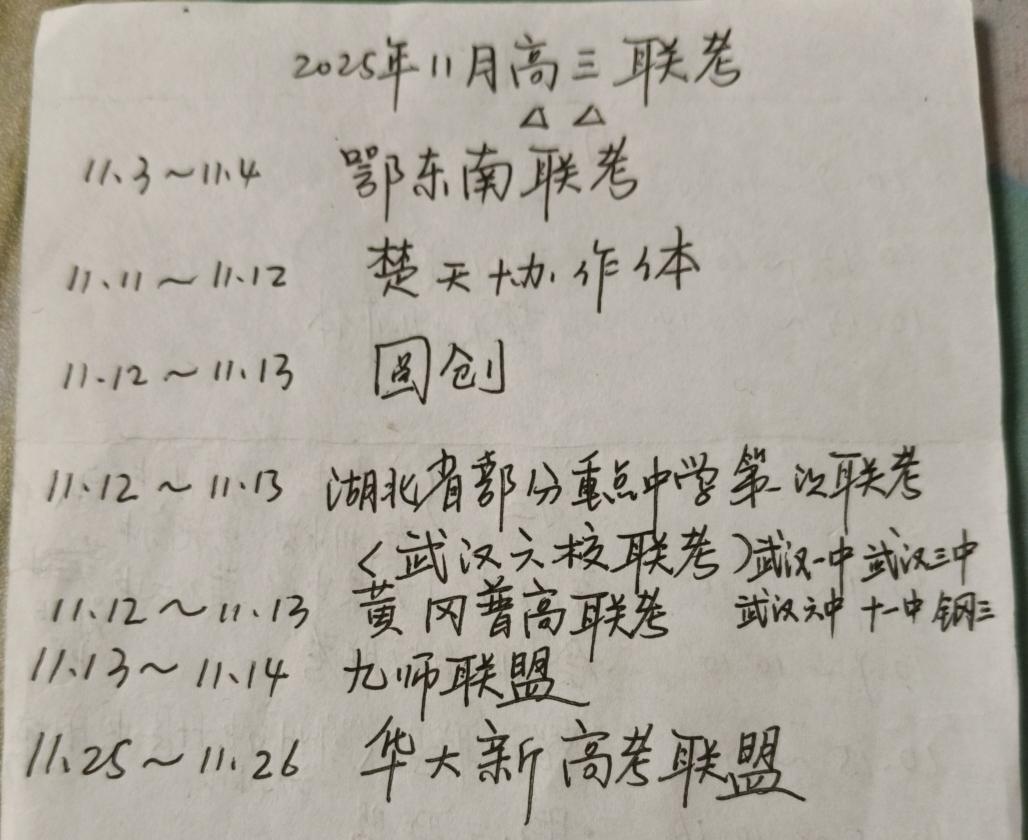 2025年11月高三联考
△ △
11.3~11.4 鄂东南联考
11.11~11.12 楚天协作体
11.12~11.13 圆创
11.12~11.13 湖北省部分重点中学第一次联考
(武汉六校联考)武汉一中 武汉三中
11.12~11.13 黄冈普高联考 武汉六中 十一中 钢三
11.13~11.14 九师联盟
11.25~11.26 华大新高考联盟